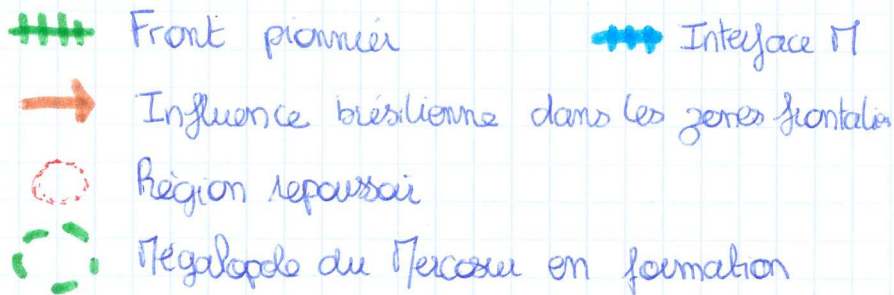 Front pionnier Interface M
Influence brésilienne dans les zones frontalières
Région repoussoir
Mégalopole du Mercosur en formation